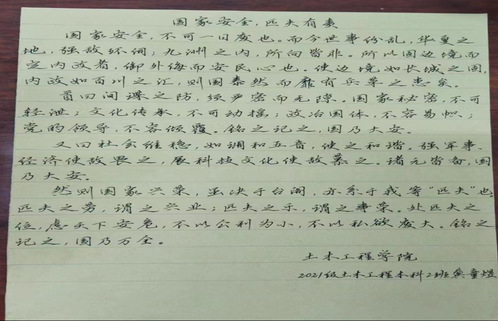 国家安全,匹夫有责
国家安全,不可一日废也。而今世事纷乱,华夏之
地,强敌环伺,九州之内,所向皆非。所以固边境而
定内政者,御外侮而安民心也。使边境如长城之固,
内政如百川之江,则国泰然而靡有兵革之患矣。
首曰间谍之防,须严密而无隙。国家秘密,不可
轻泄;文化传承,不可动摇;政治国体,不容易帜;
党的领导,不容倾覆。铭之记之,国乃大安。
又曰社会维稳,如调和五音,使之和谐。强军事、
经济使敌畏之,展科技文化使敌慕之。诸元皆备,国
乃大安。
然则国家兴荣,虽决于台阁,亦系于我等“匹夫”也。
匹夫之劳,谓之兴业;匹夫之乐,谓之事荣。处匹夫之
位,虑天下安危,不以公利为小,不以私欲废大。铭之
记之,国乃万全。
土木工程学院
2021级土木工程本科2班